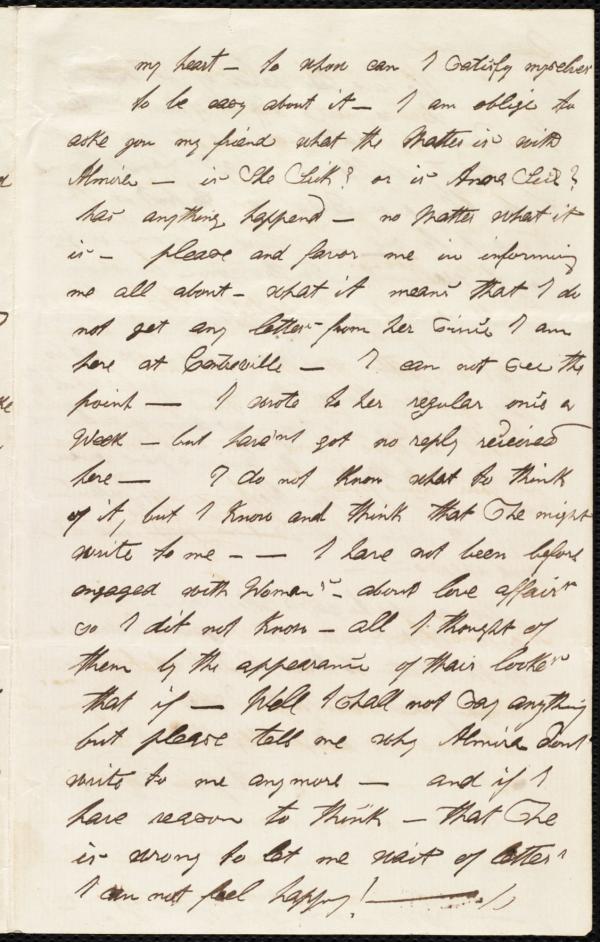 my heart — to whom can I Satisfy myselves
to be easy about it — I am oblige to
aske you my friend what the Matter is with
Almira — is She Sick? or is Anna Sick?
has anything happend — no Matter what it
is — please and favor me in informing
me all about — what it means that I do
not get any letter from her Since I am
here at Centreville — I can not See the
point — I wrote to her regular onse a
Week — but havent got no reply received
here — I do not Know what to think
of it, but I Know and think that She might
write to me — — I have not been before
engaged with Woman's — about love affairs
so I dit not Know — all I thought of
them by the appearance of thair looks
that if — Well I shall not Say anything
but please tell me why Almira dont
write to me anymore — and if I
have reason to think — that She
is wrong to let me wait of letters
I can not feel happy! —